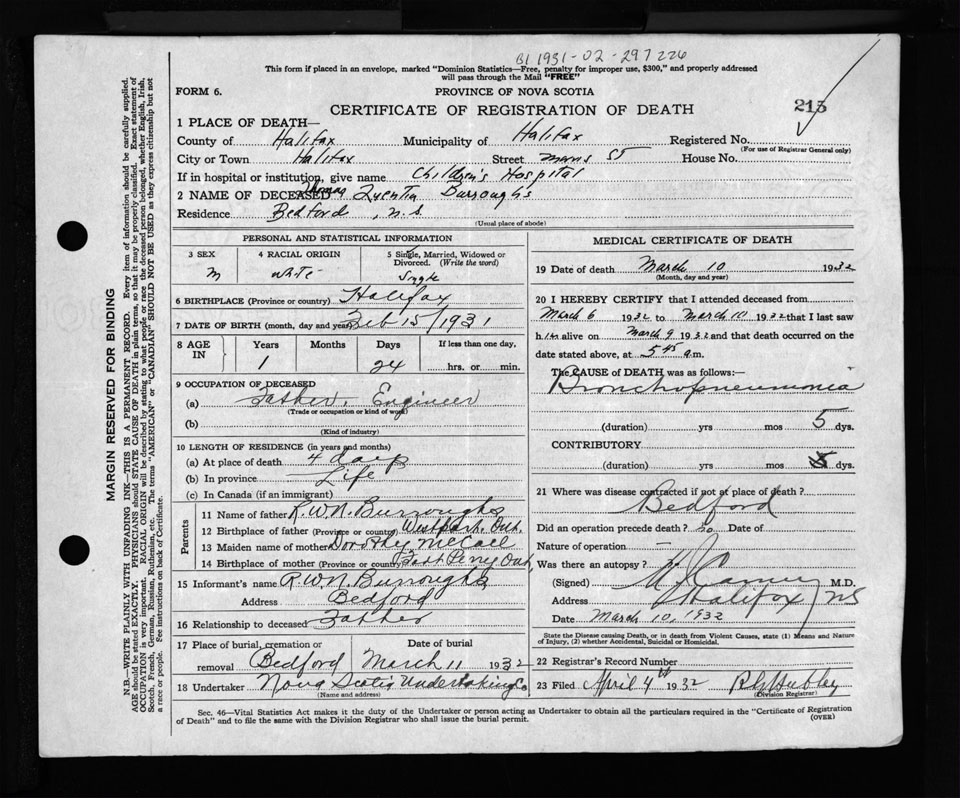 B1 1931-02-297226
This form if placed in an envelope, marked "Dominion Statistics—Free, penalty for improper use, $300," and properly addressed
will pass through the Mail "FREE"
FORM 6.
PROVINCE OF NOVA SCOTIA
CERTIFICATE OF REGISTRATION OF DEATH
215
1 PLACE OF DEATH—
County of Halifax Municipality of Halifax Registered No.
(For use of Registrar General only)
City or Town Halifax Street Morris St House No.
If in hospital or institution, give name Children's Hospital
2 NAME OF DECEASED Thomas Quentin Burroughs
Residence Bedford, N.S.
(Usual place of abode)
PERSONAL AND STATISTICAL INFORMATION
3 SEX 4 RACIAL ORIGIN 5 Single, Married, Widowed or
Divorced. (Write the word)
M White Single
6 BIRTHPLACE (Province or country) Halifax
7 DATE OF BIRTH (month, day and year) Feb 15/1931
8 AGE IN Years Months Days If less than one day,
1 24 hrs. or min.
9 OCCUPATION OF DECEASED
(a) Father. Engineer
(Trade or occupation or kind of work)
(b)
(Kind of industry)
10 LENGTH OF RESIDENCE (in years and months)
(a) At place of death 4 days
(b) In province Life
(c) In Canada (if an immigrant)
Parents
11 Name of father R.W.N. Burroughs
12 Birthplace of father (Province or country) Westport. Ont.
13 Maiden name of mother Dorothy McCall
14 Birthplace of mother (Province or country) Ont.
15 Informant's name R.W.N. Burroughs
Address Bedford
16 Relationship to deceased Father
17 Place of burial, cremation or removal Date of burial
Bedford March 11 1932
18 Undertaker Nova Scotia Undertaking Co
(Name and address)
MEDICAL CERTIFICATE OF DEATH
19 Date of death March 10 1932
(Month, day and year)
20 I HEREBY CERTIFY that I attended deceased from
March 6 1932 to March 10 1932 that I last saw
him alive on March 9 1932 and that death occurred on the
date stated above, at 5 45 a.m.
The CAUSE of DEATH was as follows:
Bronchopneumonia
(duration) yrs mos 5 dys.
CONTRIBUTORY
(duration) yrs mos dys.
21 Where was disease contracted if not at place of death?
Bedford
Did an operation precede death? no Date of
Nature of operation —
Was there an autopsy?
(Signed) M.D.
Address Halifax NS
Date March 10, 1932
State the Disease causing Death, or in death from Violent Causes, state (1) Means and Nature
of Injury, (2) whether Accidental, Suicidal or Homicidal.
22 Registrar's Record Number
23 Filed April 4th 1932
(Division Registrar)
Sec. 46—Vital Statistics Act makes it the duty of the Undertaker or person acting as Undertaker to obtain all the particulars required in the "Certificate of Registration
of Death" and to file the same with the Division Registrar who shall issue the burial permit.
(OVER)
MARGIN RESERVED FOR BINDING
N.B.—WRITE PLAINLY WITH UNFADING INK—THIS IS A PERMANENT RECORD. Every item of information should be carefully supplied.
AGE should be stated EXACTLY. PHYSICIANS should STATE CAUSE OF DEATH in plain terms, so that it may be properly classified. Exact statement of
OCCUPATION is very important. RACIAL ORIGIN will be described by stating to what people or race the deceased person belonged, whether English, Irish,
Scotch, French, German, Russian, Ruthenian, etc. The terms "AMERICAN" or "CANADIAN" SHOULD NOT BE USED as they express citizenship but not
a race or people. See instructions on back of Certificate.